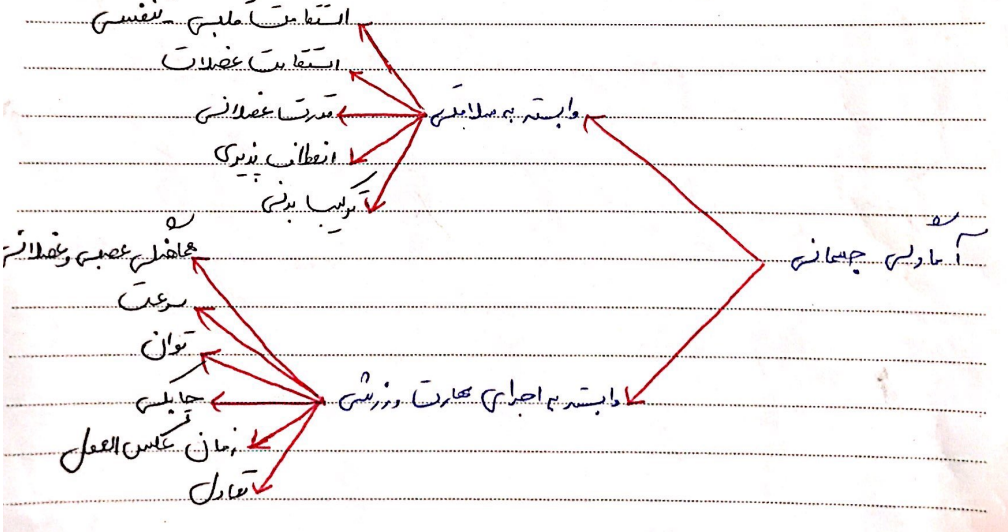 آمادگی جسمانی
وابسته به سلامتی
استقامت قلبی - تنفسی
استقامت عضلات
قدرت عضلانی
انعطاف پذیری
ترکیب بدنی
وابسته به اجرای مهارت ورزشی
هماهنگی عصبی و عضلانی
سرعت
توان
چابکی
زمان عکس العمل
تعادل